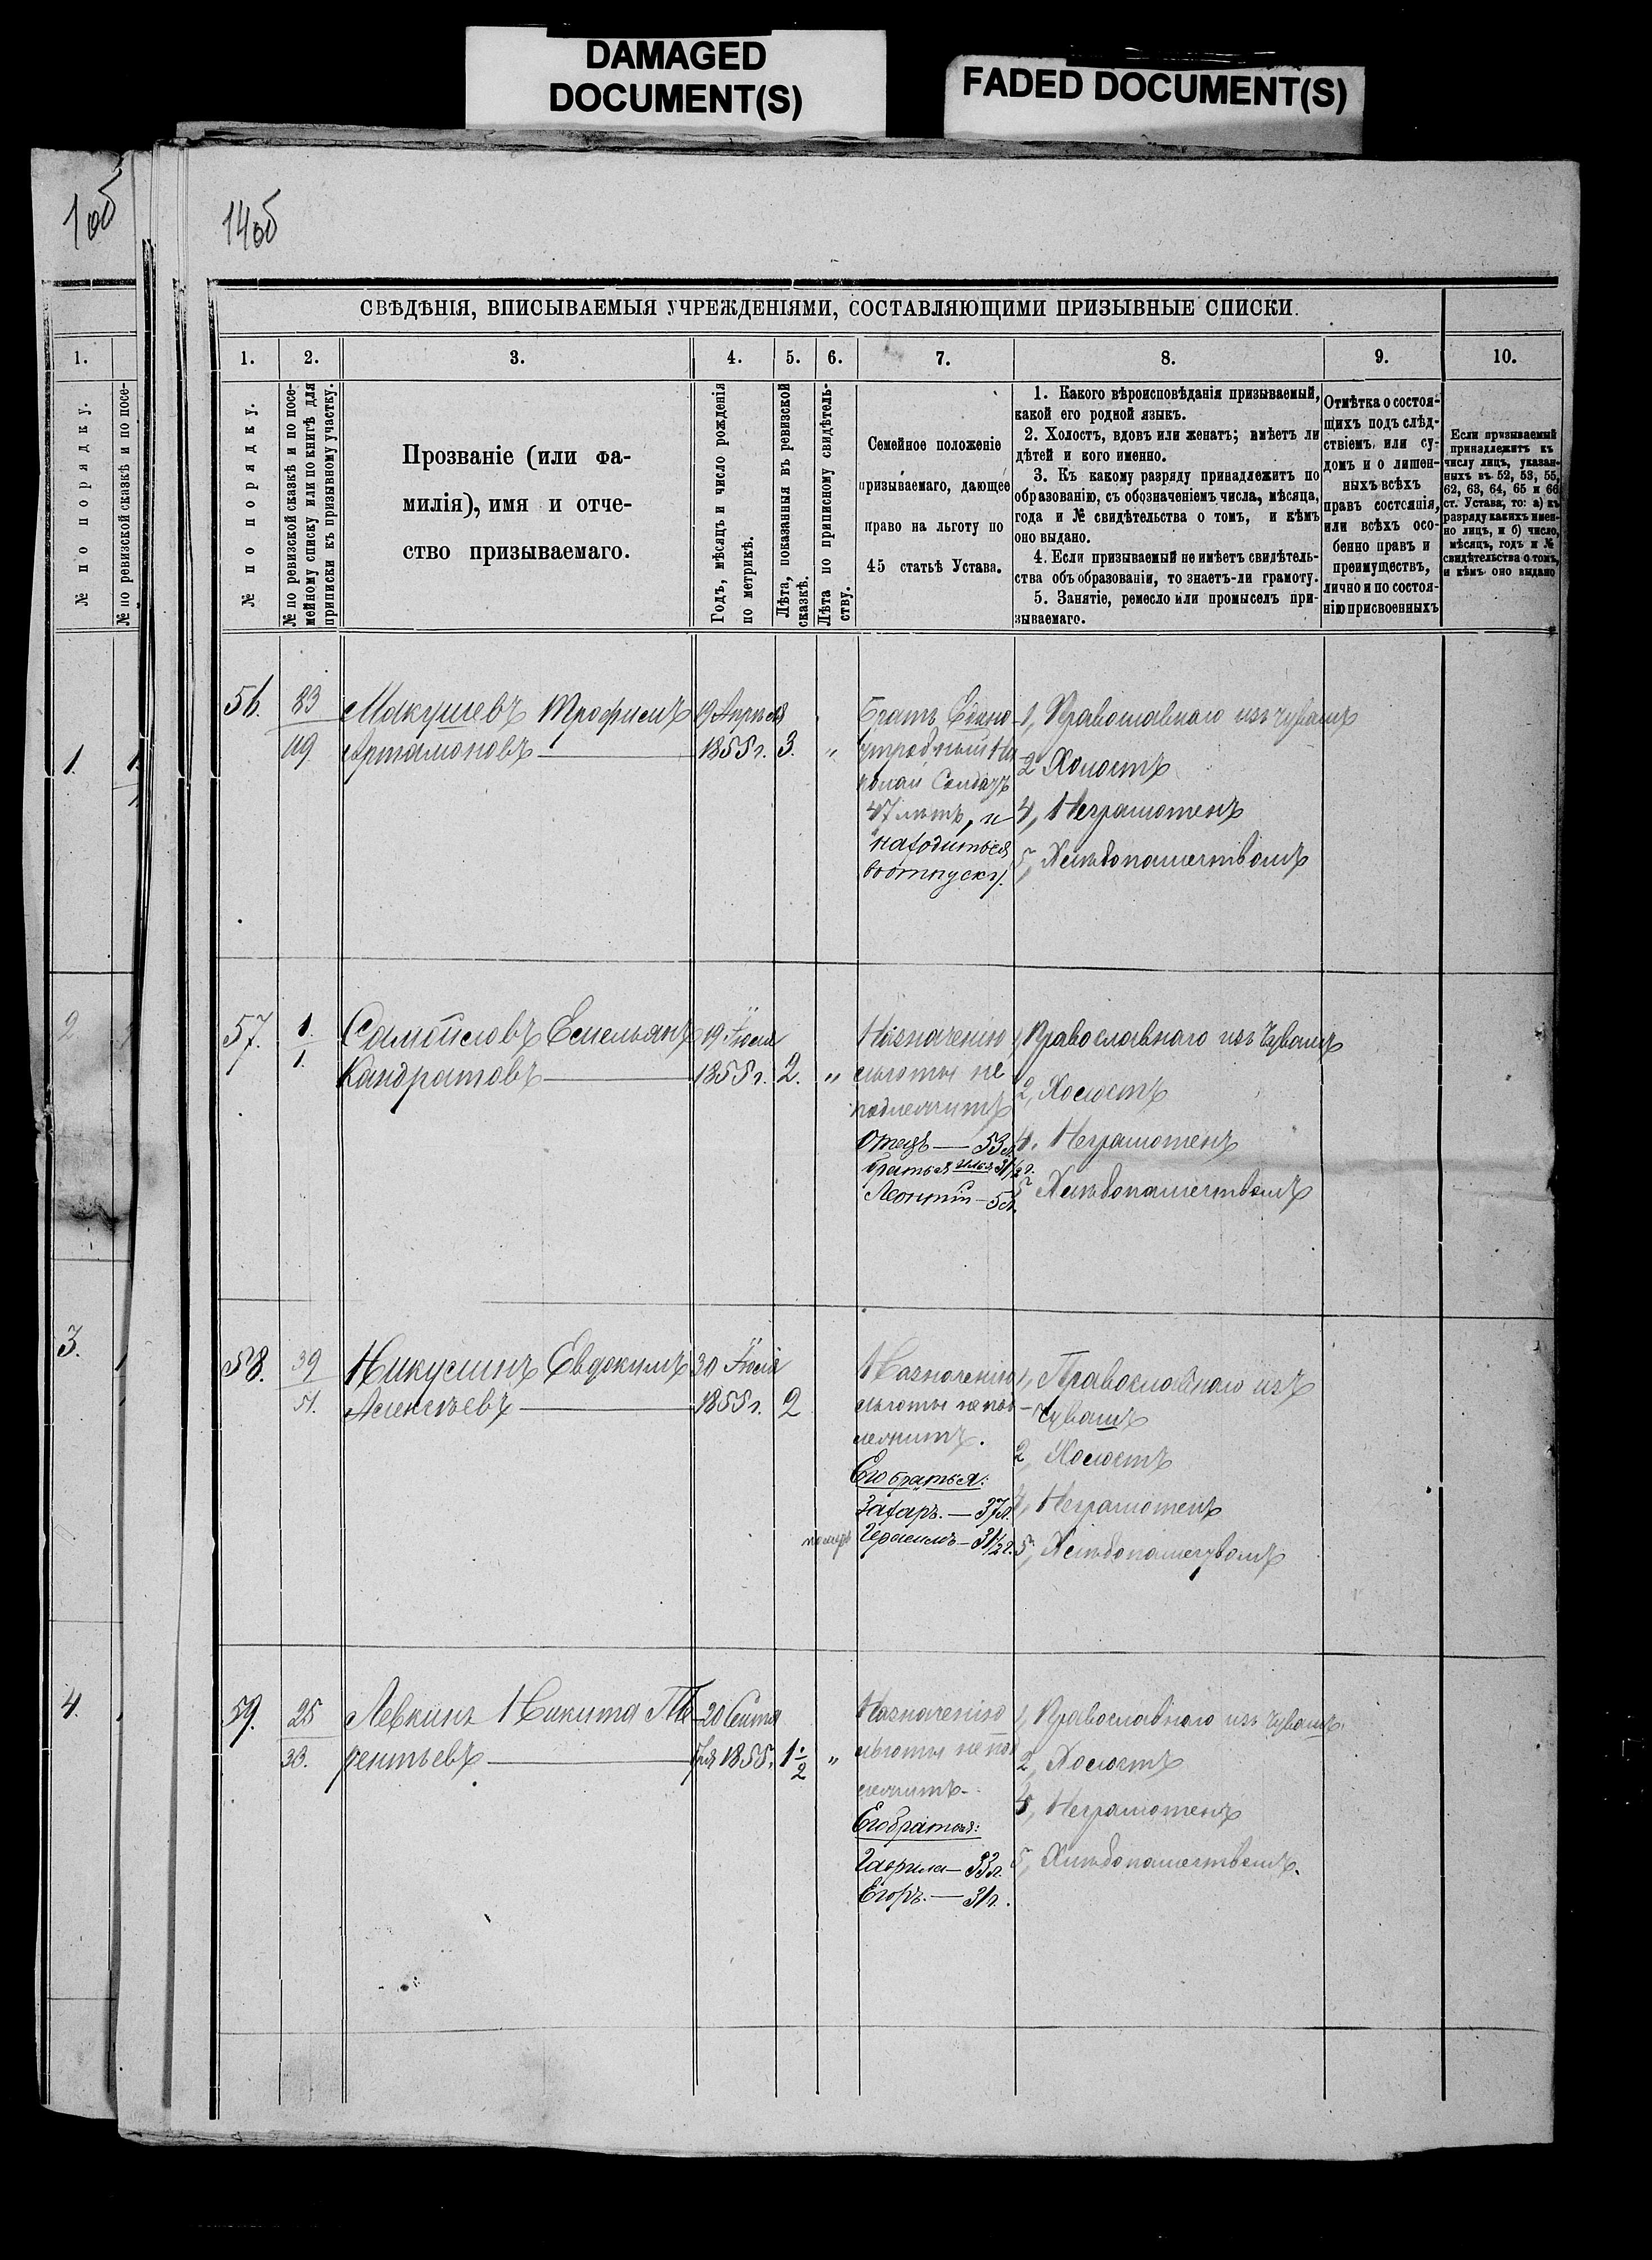 DAMAGED
DOCUMENT(S)
FADED DOCUMENT(S)
1об
14об
СВѢДѢНІЯ, ВПИСЫВАЕМЫЯ УЧРЕЖДЕНІЯМИ, СОСТАВЛЯЮЩИМИ ПРИЗЫВНЫЕ СПИСКИ.
1.
1. 2. 3. 4. 5. 6. 7. 8. 9. 10.
№ по порядку.
№ по ревизской сказкѣ и по посе-
№ по порядку.
№ по ревизской сказкѣ и по посе-
мейному списку или по книгѣ для
приписки къ призывному участку.
Прозваніе (или фа-
милія), имя и отче-
ство призываемаго.
Годъ, мѣсяцъ и число рожденія
по метрикѣ.
Лѣта, показанныя въ ревизской
сказкѣ.
Лѣта по приписному свидѣтель-
ству.
Семейное положеніе
призываемаго, дающее
право на льготу по
45 статьѣ Устава.
1. Какого вѣроисповѣданія призываемый,
какой его родной языкъ.
2. Холостъ, вдовъ или женатъ; имѣетъ ли
дѣтей и кого именно.
3. Къ какому разряду принадлежитъ по
образованію, съ обозначеніемъ числа, мѣсяца,
года и № свидѣтельства о томъ, и кѣмъ
оно выдано.
4. Если призываемый не имѣетъ свидѣтель-
ства объ образованіи, то знаетъ-ли грамоту.
5. Занятіе, ремесло или промыселъ при-
зываемаго.
Отмѣтка о состоя-
щихъ подъ слѣд-
ствіемъ или су-
домъ и о лишен-
ныхъ всѣхъ
правъ состоянія,
или всѣхъ осо-
бенно правъ и
преимуществъ,
лично и по состоя-
нію присвоенныхъ
Если призываемый
принадлежитъ къ
числу лицъ, указан-
ныхъ въ 52, 53, 55,
62, 63, 64, 65 и 66
ст. Устава, то: а) къ
разряду какихъ имен-
но лицъ, и б) число,
мѣсяцъ, годъ и №
свидѣтельства о томъ,
и кѣмъ оно выдано
1.
2
3.
4.
56. 83
119
Макушевъ Трофимъ
Артамоновъ
19 Апрѣля
1855 г. 3. „
Братъ Едино
утробный
Солдатъ
47 лѣтъ, и
находиться
вотпуску.
1, Православнаго изъ чувашъ
2 Холостъ
4, Неграмотенъ
5, Хлѣбопашествомъ
57. 1.
1.
Самойловъ Емельянъ
Кандратовъ
19 Іюля
1855 г. 2. „
Назначенію
льготы не
подлежитъ
Отецъ — 53 л.
братья Илья 31/2 г.
Леонтій — 5 л.
1, Православнаго изъ Чувашъ
2, Холостъ
4. Неграмотенъ
5 Хлѣбопашествомъ
58. 39
51.
Никусинъ Евдокимъ
Алексѣевъ
30 Іюля
1855 г. 2
Назначенію
льготы не под
лежитъ.
Его братья:
Захаръ. — 37 л.
Герасимъ — 31/2 г.
1, Православнаго изъ
Чувашъ
2, Холостъ
4, Неграмотенъ
5, Хлѣбопашествомъ
59. 25
33.
Левкинъ Никита Те
рентьевъ
20 Сентя
бря 1855. 1 1/2 „
Назначенію
льготы не по
лежитъ.
Его братья:
Гаврила — 33 л.
Егоръ. — 31 г.
1, Православнаго изъ Чувашъ
2, Холостъ
4, Неграмотенъ
5, Хлѣбопашествомъ.